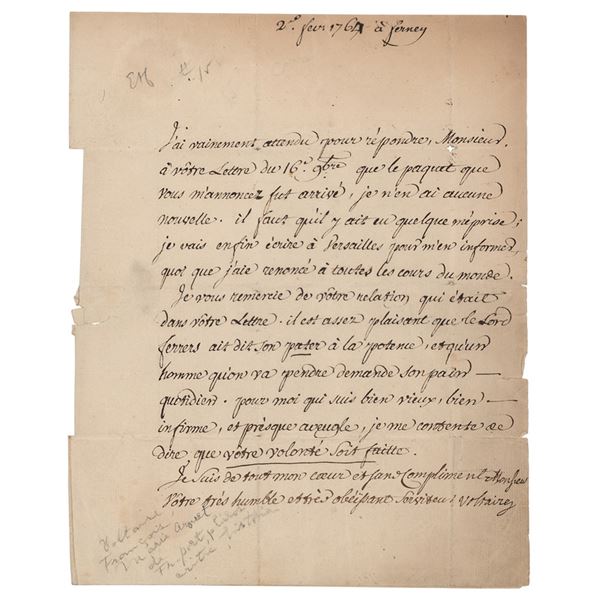 2d. fevr 1764 à ferney
J'ai vainement attendu pour répondre, Monsieur,
à vôtre Lettre du 16e. 9bre que le paquet que
vous m'annoncez fut arrivé, je n'en ai aucune
nouvelle. il faut qu'il y ait eu quelque méprise;
je vais enfin écrire à Versailles pour m'en informer,
quoi que j'aie renoncé à toutes les cours du monde.
Je vous remercie de vôtre relation qui était
dans vôtre Lettre. il est assez plaisant que le Lord
ferrers ait dit son pater à la potence, et qu'un
homme qu'on va pendre demande son pain
quotidien. pour moi qui suis bien vieux, bien
infirme, et présque aveugle, je me contente de
dire que vôtre volonté soit faitte.
Je suis de tout mon cœur et sans Compliment Monsieur
Vôtre très humble et très obéissant serviteur Voltaire
Voltaire
François
Marie Arouet
de